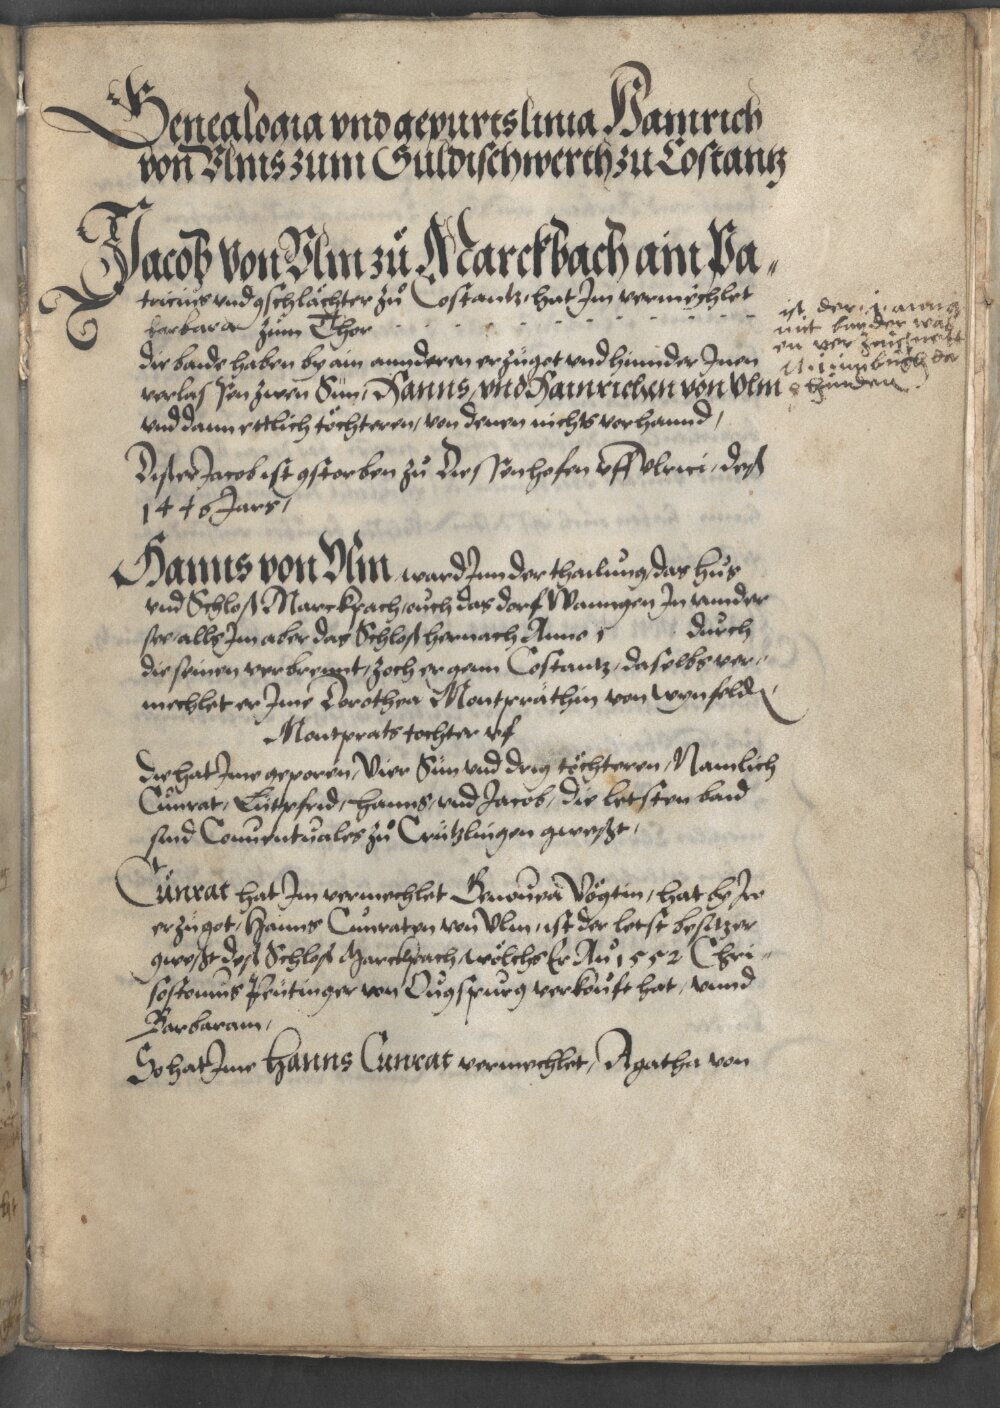 Genealogia vnd gepurtslinia Hainrich
von Vlms zum Guldischwerth zu Costantz
Jacob von Vlm zů Marckbach ain Pa„
tricius vnd gschlächter zů Costantz, hat Im vermechlet
barbara zum Thor
die baide haben by ain annderen erzüget vnd hinnder Inen
verlassen zwen Sün, Hanns, vnd Hainrichen von Vlm
vnd dann ettlich töchteren, von denen nichts vorhannd,
Diser Jacob ist gstorben zů Diessenhofen vff Vlrici, deß
1446 Jars,
Hanns von Vlm, ward Inn der thailung, das hus
vnd Schloß Marckpach, ouch das dorf Wanngen Im vnnder
see, alls Im aber das Schloß hernach Anno 1 durch
die seinen verbrennt, zoch er genn Costantz, daselbs ver„
mechlet er Ime Dorothea Montpräthin von wynfelden,
Montprats tochter vf
die hat Ime geporen, Vier Sün vnd dryg töchteren, Namlich
Cůnrat, Lütpfrid, hanns, vnd Jacob, die letsten baid
sind Conuentuales zů Crützlingen gweßt,
Cůnrat hat Im vermechlet Genouea Vögtin, hat by Ir
erzüget, Hanns Cunraten von Vlm, ist der letst besitzer
gweßt deß Schloß Marckpach, wölchs Er Aů 1552 Chri„
sostomus Peutinger von Ougspurg verkouft hat, vnnd
Barbaram,
So hat Ime hanns Cunrat vermechlet, Agatha von
ist der
mit